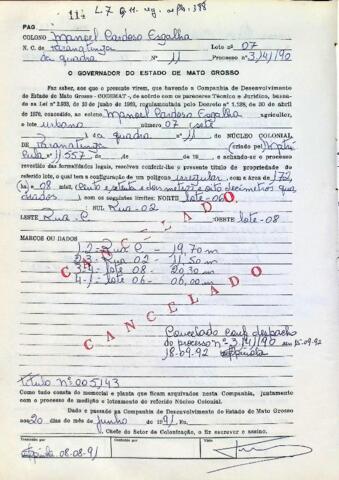 114 L.7 Q 11. reg. às fls. 388
PAG
COLONO Manoel Cardoso Ezgalha
N. C. de Paranatinga Lote nº 07
da quadra Nº 11 Processo nº 3/4/90
O GOVERNADOR DO ESTADO DE MATO GROSSO
Faz saber, aos que o presente virem, que havendo a Companhia de Desenvolvimento
do Estado de Mato Grosso - CODEMAT -, de acôrdo com os pareceres Técnico e Jurídico, basea-
do na Lei nº 2.933, de 10 de junho de 1969, regulamentada pelo Decreto nº 1.138, de 30 de abril
de 1970, concedido, ao colono Manoel Cardoso Ezgalha agricultor,
o lote urbano número 07 (sete
) da quadra nº 11 NÚCLEO COLONIAL
de Paranatinga criado pela Matri
cula nº 557 de de de 19 e achando-se o processo
revestido das formalidades legais, resolveu conferir-lhe o presente título de propriedade do
referido lote, o qual tem a configuração de um polígono irregular, com a área de 172,
08 m² (Cento e setenta e dois metros e oito decímetros qua
drados) com os seguintes limites: NORTE lote-06
SUL Rua-02
LESTE Rua-C OESTE lote-08
MARCOS OU DADOS
1-2-Rua C - 19,70 m
2-3-Rua 02 - 11,50 m
3-4-lote 08 - 20,30 m
4-1-lote 06 - 06,00 m
CANCELADO
CANCELADO
Cancelado conf. despacho
do processo nº 3/4/90 em 15.09.92
18-09-92
Título nº 005143
Como tudo consta do memorial e planta que ficam arquivados nesta Companhia, juntamente
com o processo de medição e loteamento do referido Núcleo Colonial.
Dado e passado na Companhia de Desenvolvimento do Estado de Mato Grosso
aos 20 dias do mês de junho de 1991.
Chefe do Setor de Colonização, o fiz escrever e assino.
08-08-91